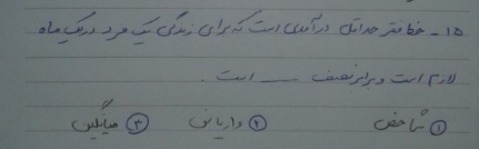 ۱۵ - خط فقر حداقل درآمدی است که برای زندگی یک فرد در یک ماه
لازم است و برابر نصف ـــــ است .
① شاخص ② واریانس ③ میانگین